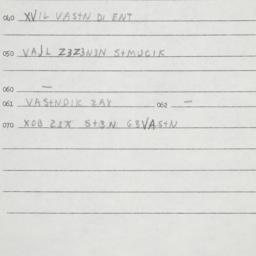 040 XVIL VASTN DI ENT
050 VAJL Z3Z3N3N STMUCIK
060 —
061 VASTNDIK ZAY 062 —
070 XOB Z3X ST3N G3VASTN